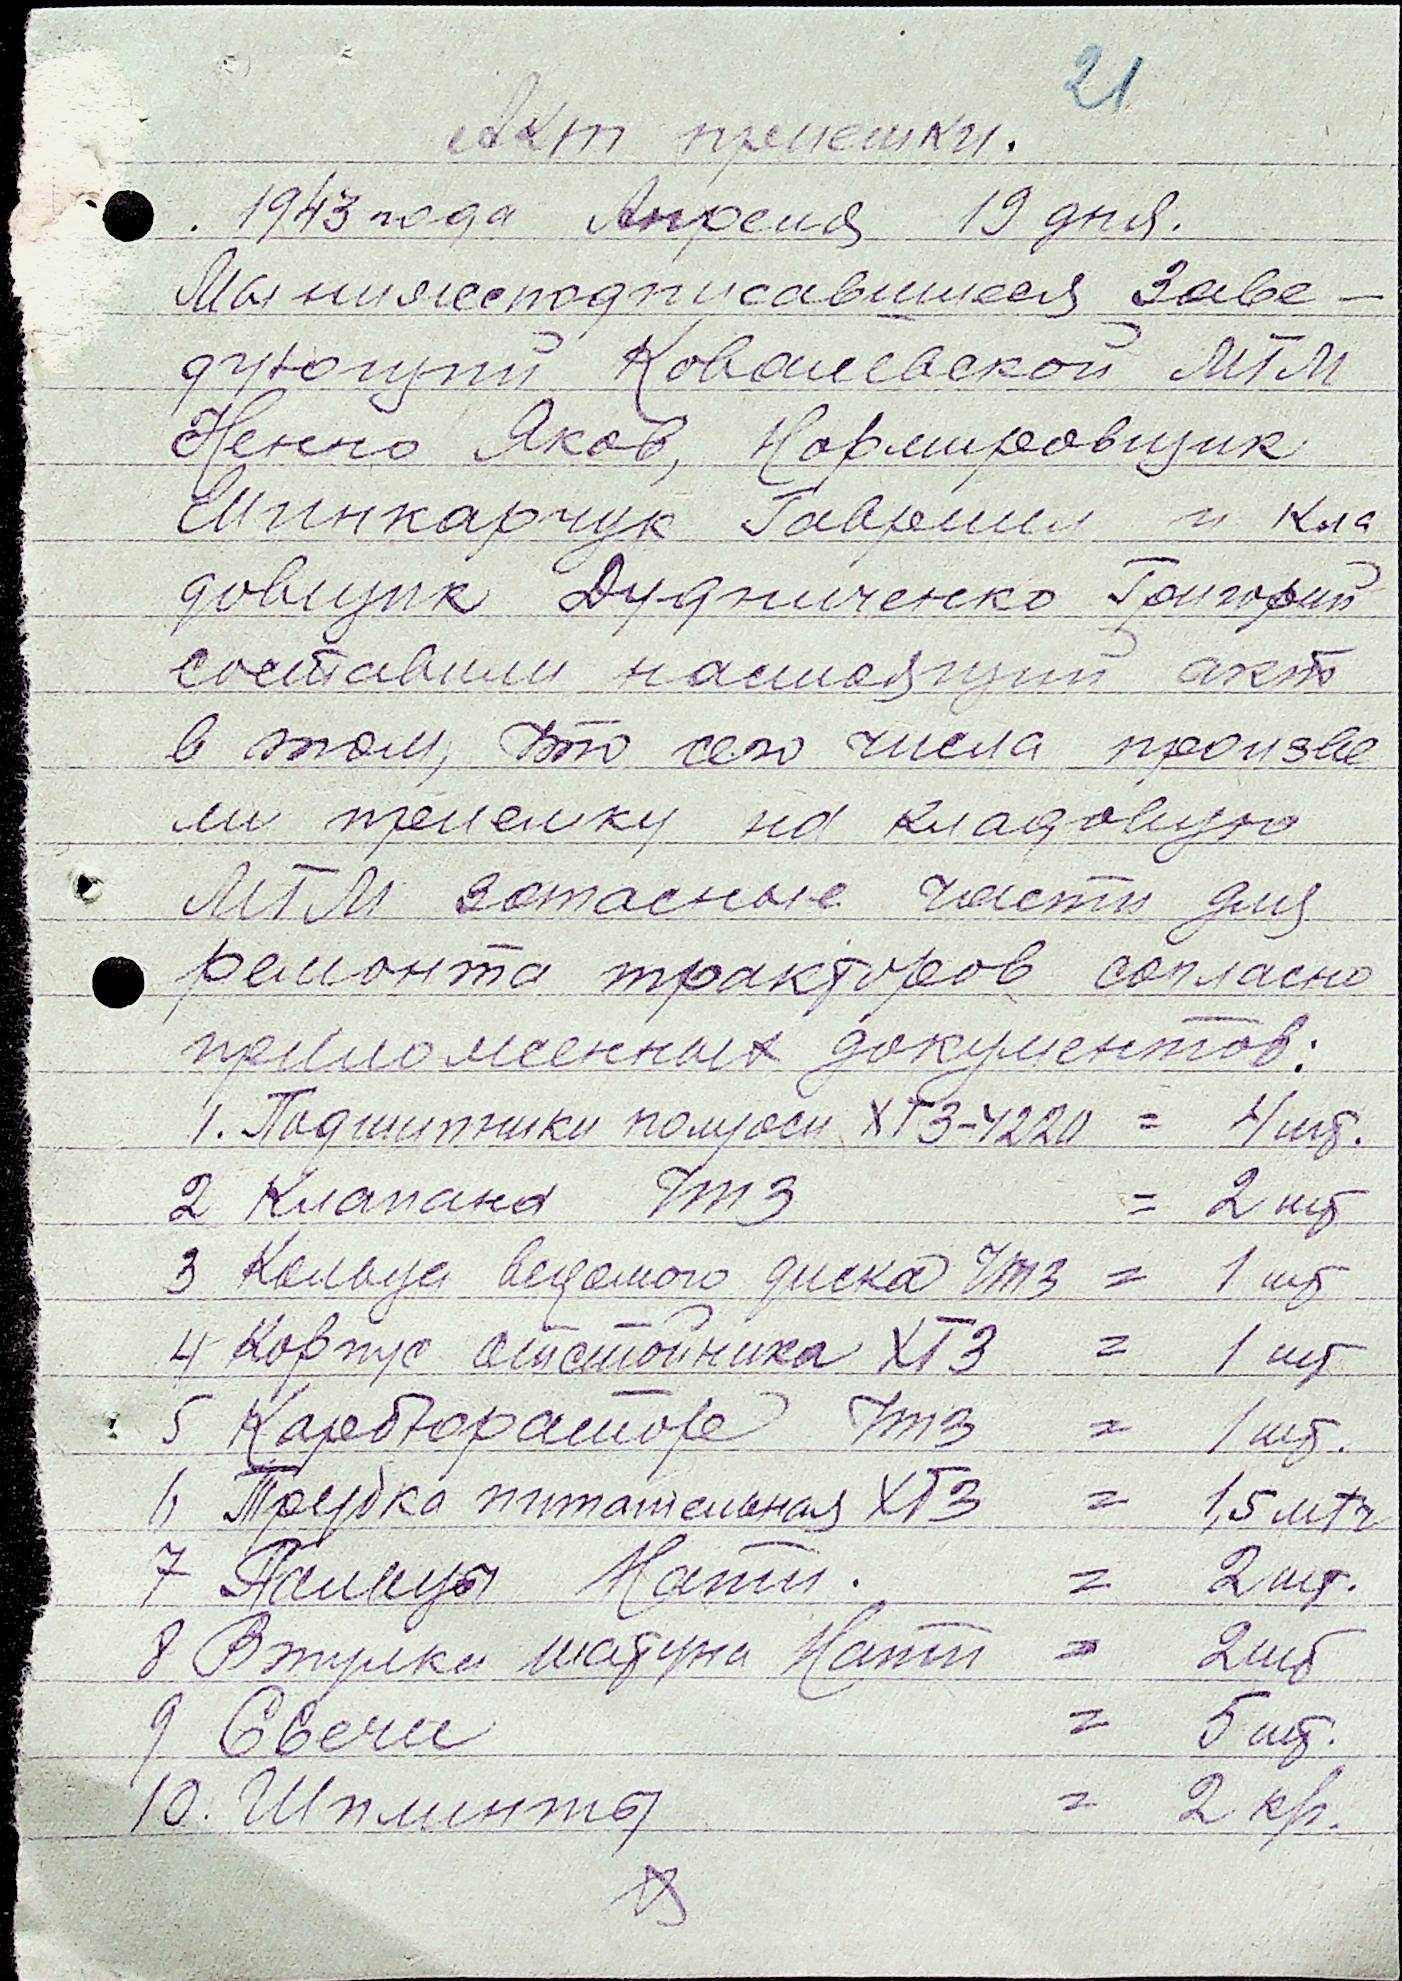 21
Акт приемки.
1943 года Апреля 19 дня.
Мы нижеподписавшиеся Заве-
дующий Ковалевской МТМ
Ненно Яков, Нормировщик
Шинкарчук Гавриил и Кла
довщик Дудниченко Григорий
составили настоящий акт
в том, что сего числа произве
ли приемку на кладовую
МТМ запасные части для
ремонта тракторов согласно
приложенных документов:
1. Подшипники полуоси ХТЗ-4220 = 4 шт.
2 Клапана ЧТЗ = 2 шт
3 Кольца ведомого диска ЧТЗ = 1 шт
4 Корпус отстойника ХТЗ = 1 шт
5 Карбюраторе ЧТЗ = 1 шт.
6 Трубка питательная ХТЗ = 1,5 мтр
7 Пальцы Нати. = 2 шт.
8 Втулки шатуна Нати = 2 шт
9 Свечи = 5 шт.
10. Шплинты = 2 кр.